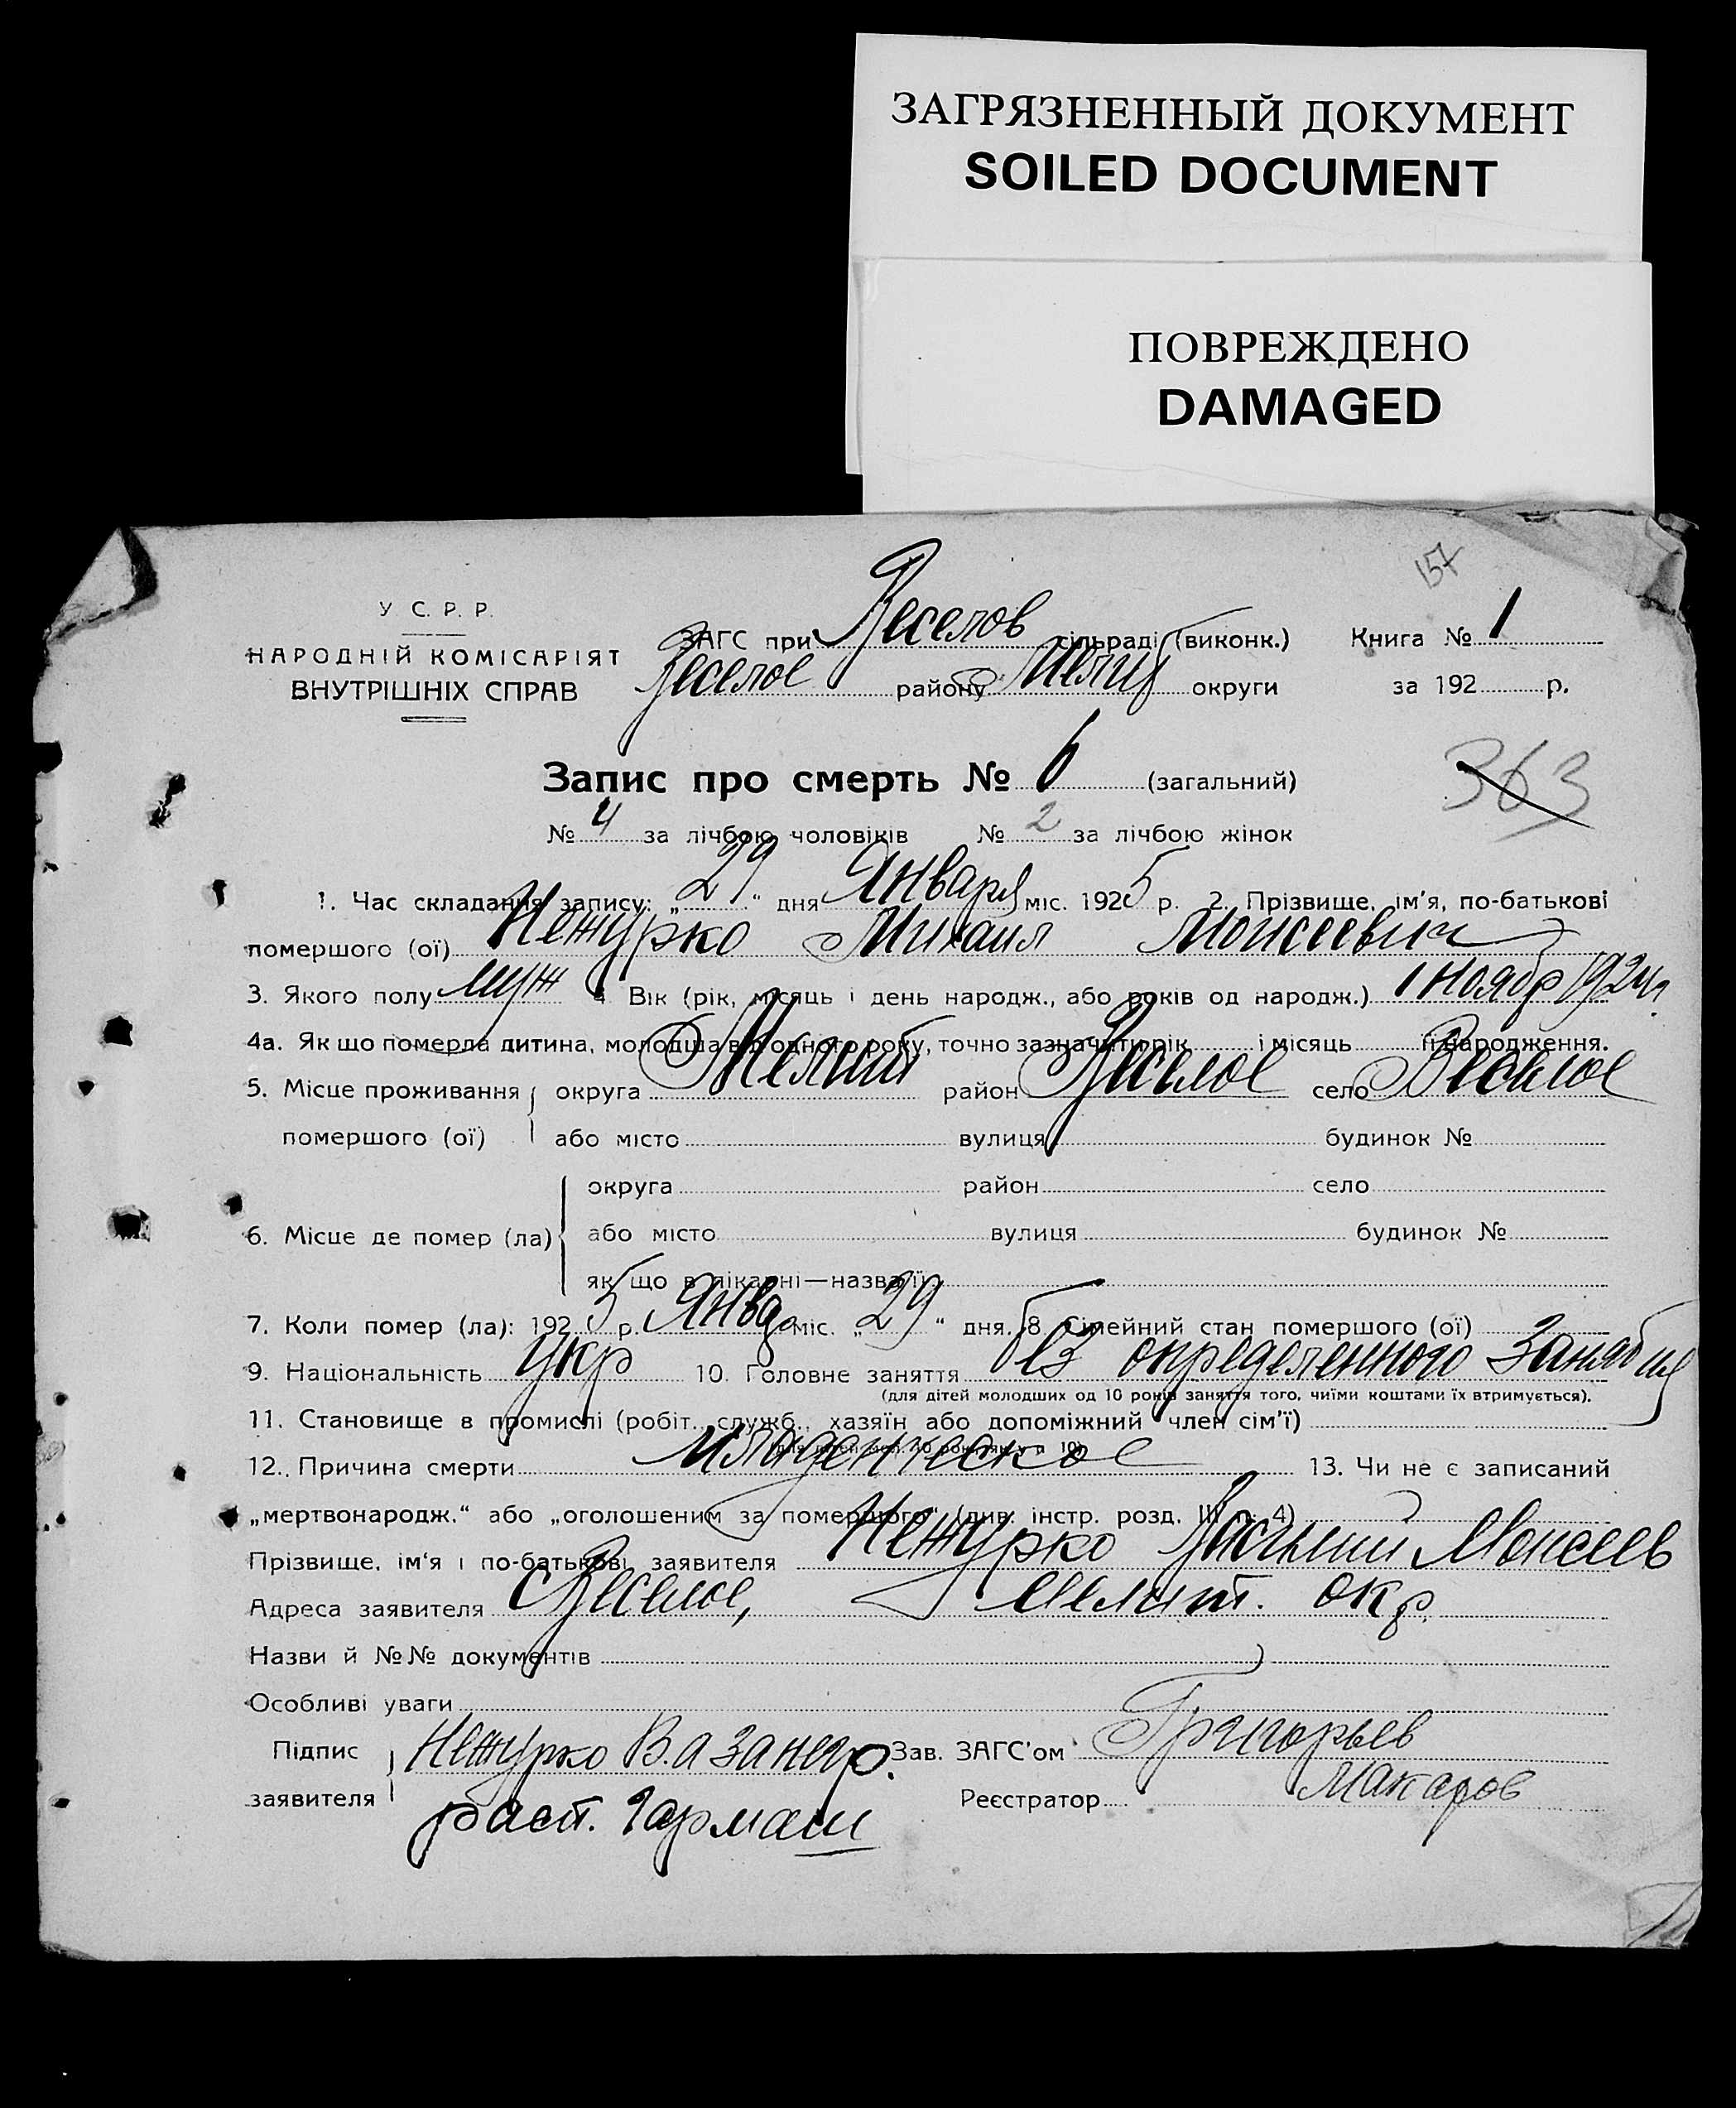 ЗАГРЯЗНЕННЫЙ ДОКУМЕНТ
SOILED DOCUMENT
ПОВРЕЖДЕНО
DAMAGED
157
У С. Р. Р.
НАРОДНІЙ КОМІСАРІЯТ
ВНУТРІШНІХ СПРАВ
ЗАГС при Веселов сільраді (виконк.)
Веселое району Меліт округи
Книга № 1
за 192 р.
Запис про смерть № 6 (загальний)
363
№ 4 за лічбою чоловіків № 2 за лічбою жінок
1. Час складання запису: „29“ дня Января міс. 1925 р. 2. Прізвище, ім’я, по-батькові
помершого (ої) Нежурко Михаил Моисеевич
3. Якого полу муж 4 Вік (рік, місяць і день народж., або років од народж.) 1 Ноябр 1924 г
4а. Як що померла дитина, молодша від одного року, точно зазначити рік і місяць її народження.
5. Місце проживання округа Мелит район Веселое село Веселое
помершого (ої) або місто вулиця будинок №
округа район село
6. Місце де помер (ла) або місто вулиця будинок №
як що в лікарні—назва її
7. Коли помер (ла): 1925 р. Янва міс. „29“ дня. 8 Сімейний стан помершого (ої)
9. Національність укр 10. Головне заняття без определенного Занятия
(для дітей молодших од 10 років заняття того, чиїми коштами їх втримується).
11. Становище в промислі (робіт., служб., хазяїн або допоміжний член сім’ї)
12. Причина смерти Младенческое 13. Чи не є записаний
„мертвонародж.“ або „оголошеним за помершого“ (див. інстр. розд. III п. 4)
Прізвище, ім‘я і по-батькові заявителя Нежурко Василий Моисеев
Адреса заявителя с Веселое, Мелит. окр.
Назви й №№ документів
Особливі уваги
Підпис Нежурко В. а за негр. Зав. ЗАГС’ом Григорьев
заявителя расп. Гармаш Реєстратор Макаров